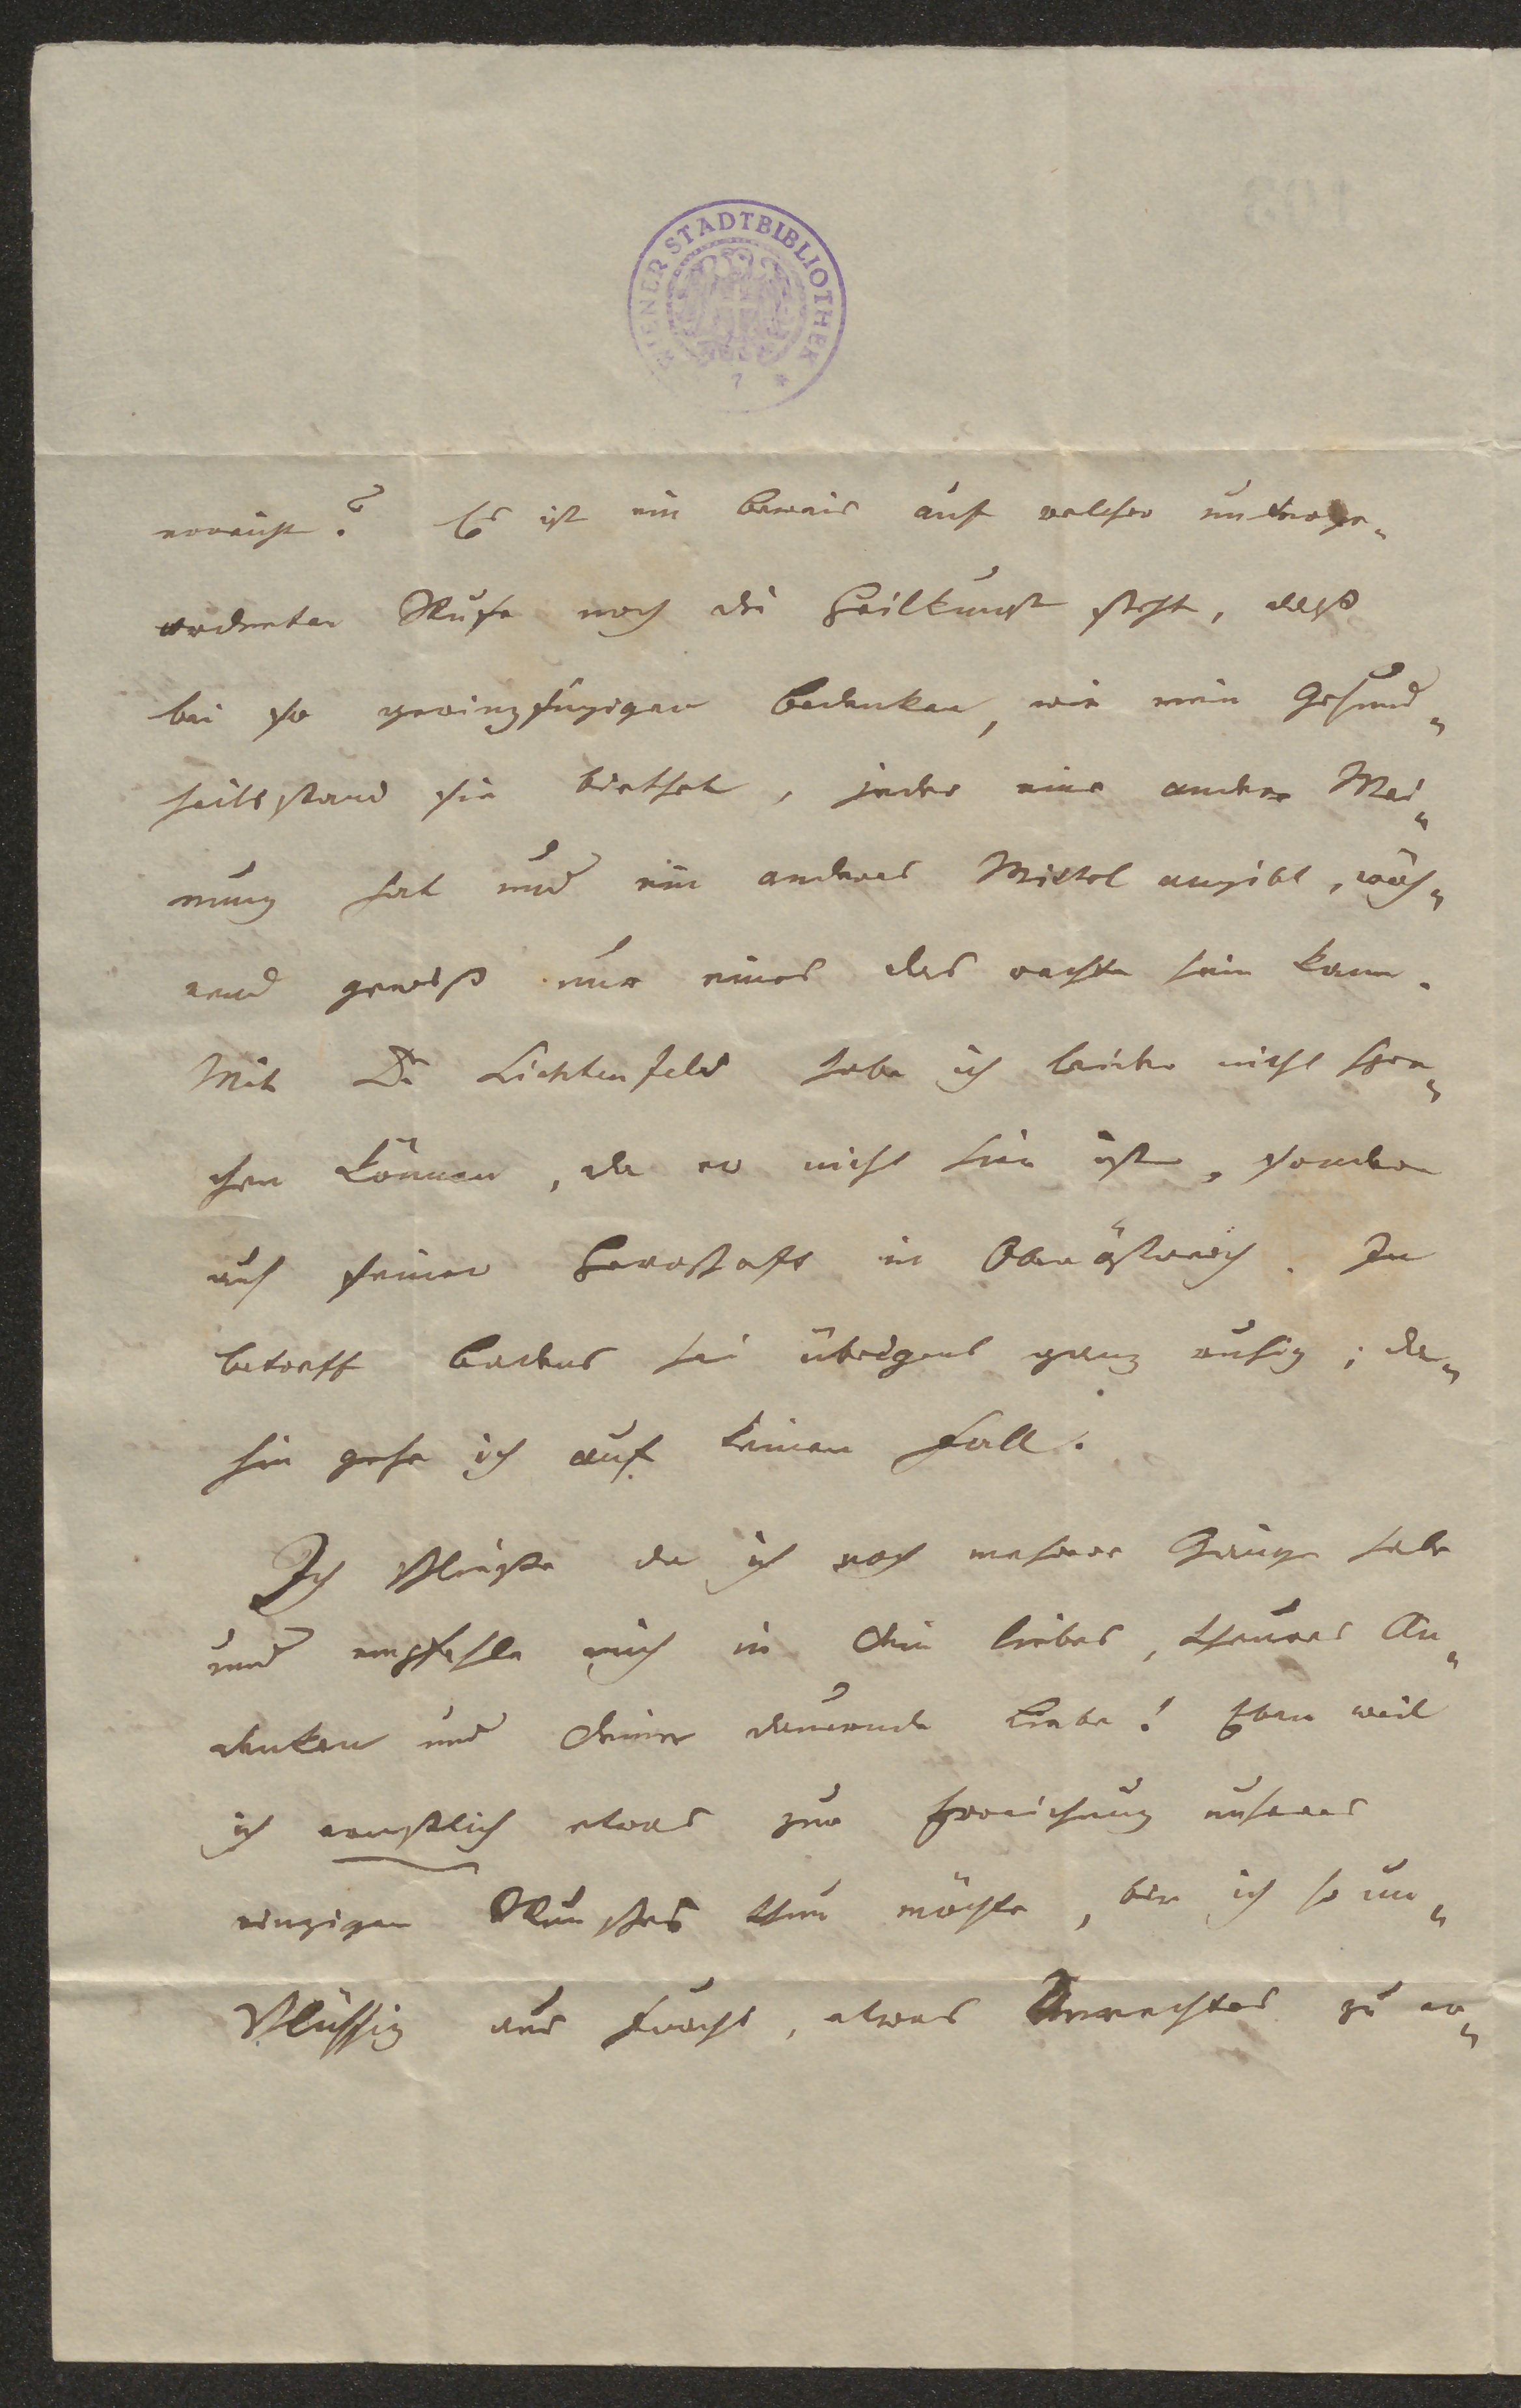 WIENER STADTBIBLIOTHEK
7 *
erreicht? Es ist ein beweis auf welcher unterge„
ordneten Stufe noch die Heilkunst steht, daß
bei so geringfügigen bedenken, wie mein Gesund„
heitsstand sie biethet, jeder eine andere Mei„
nung hat und ein anderes Mittel angibt, wäh„
rend gewiß nur eines das rechte sein kann.
Mit Dr Lichtenfels habe ich leider nicht spre„
chen können, da er nicht hier ist, sondern
auf seiner Herrschaft in Oberöstreich. In
betreff badens sei übrigens ganz ruhig; da„
hin gehe ich auf keinen Fall.
Ich schließe da ich noch mehrere Gänge habe
und empfehle mich in dein liebes, theures An„
denken und deine dauernde Liebe! Eben weil
ich ernstlich etwas zur Erreichung unseres
einzigen Wunsches thun möchte, bin ich so un„
schlüssig aus Furcht, etwas Unrechtes zu er„